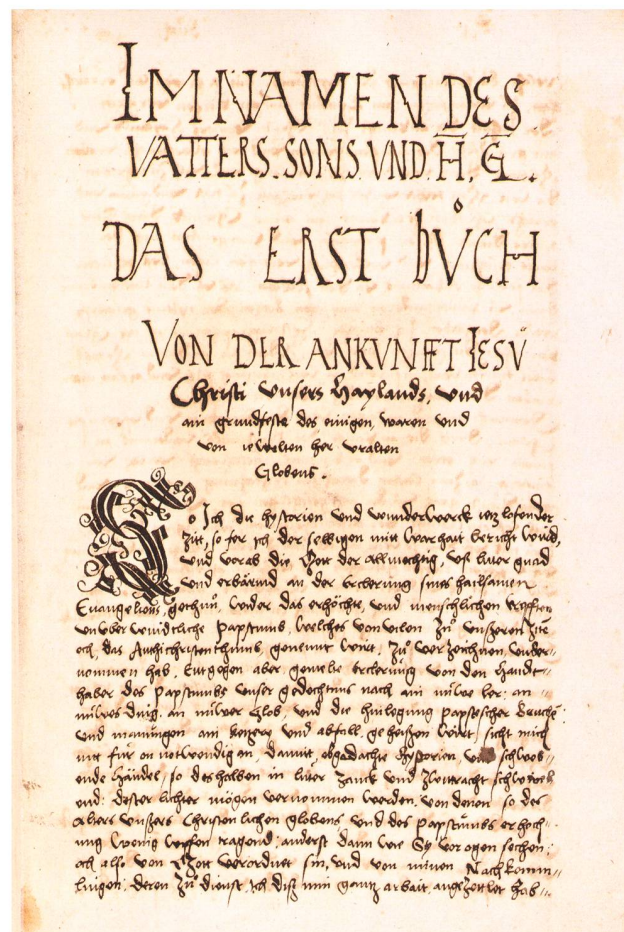 IM NAMEN DES
VATTERS. SONS. VND. H. GL.
DAS ERST bůCH
VON DER ANKVNFFT IESV
Christi vnsers Haylands, vnd
ain grundfeste des einigen, waren vnd
von ie welten her vralten
Globens.
So Ich die hystorien vnd wunderwerck ietz lofender
zitt, so fer ich der selbigen mitt warhait bericht wurd,
vnd vorab die Gott der allmechtig, vß luter gnad
vnd erbärmd an der erclerung sines hailsamen
Euangelions, gethun, wider das erhöchte, vnd menschlichen
vnüberwindtliche papstumb, welches von vilen zů vnßeren zite
och, das Antichristenthumb, genennt wirt, zů verzeichnen vnder-
nommen hab. Entgegen aber gemelte erclerung von den handt-
haber des papstumbs vnser gedechtnus nach ain nüwe ler: an
nüwes ding. an nüwer Glob, vnd die hinlegung papstischer
vnd mainungen ain ketzery vnd abfall geheißen wirt, sicht mich
nit für on notwendig an, damit, obgedachte hystorien, vnd schweb-
ende händel, so deshalben in luter zanck vnd zwitracht schweben
vnd: dester lichter mögen vernommen werden. von denen so des
alters vnßers Christenlichen globens vnd des papstumbs erhöch-
ung wenig wyssen tragend: anderst dann wie Sy vor ogen sechen:
och also von Gott verordnet sin, vnd von minen Nachkomm-
lingen, deren zů dienst Ich diß min gantz arbait, angezettlet hab